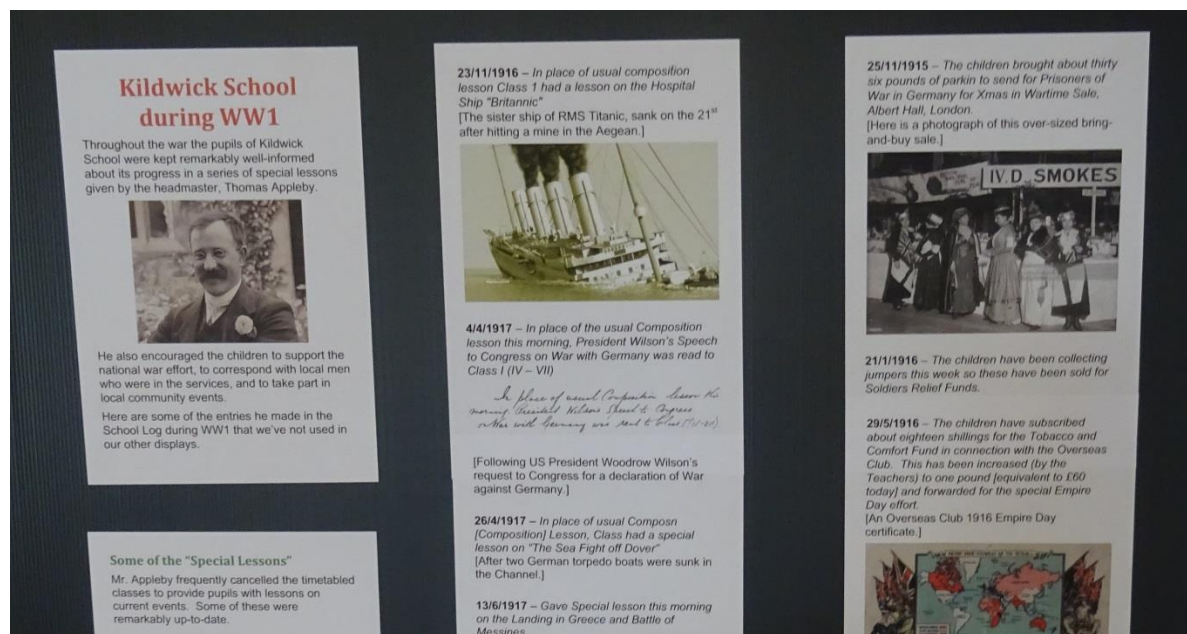 Kildwick School
during WW1
Throughout the war the pupils of Kildwick
School were kept remarkably well-informed
about its progress in a series of special lessons
given by the headmaster, Thomas Appleby.
He also encouraged the children to support the
national war effort, to correspond with local men
who were in the services, and to take part in
local community events.
Here are some of the entries he made in the
School Log during WW1 that we've not used in
our other displays.
Some of the "Special Lessons"
Mr. Appleby frequently cancelled the timetabled
classes to provide pupils with lessons on
current events. Some of these were
remarkably up-to-date.
23/11/1916 – In place of usual composition
lesson Class 1 had a lesson on the Hospital
Ship "Britannic"
[The sister ship of RMS Titanic, sank on the 21st
after hitting a mine in the Aegean.]
4/4/1917 – In place of the usual Composition
lesson this morning, President Wilson's Speech
to Congress on War with Germany was read to
Class I (IV – VII)
In place of usual Composition lesson this
morning, President Wilson's Speech to Congress
on War with Germany was read to Class I (IV-VII)
[Following US President Woodrow Wilson's
request to Congress for a declaration of War
against Germany.]
26/4/1917 – In place of usual Composn
[Composition] Lesson, Class had a special
lesson on "The Sea Fight off Dover"
[After two German torpedo boats were sunk in
the Channel.]
13/6/1917 – Gave Special lesson this morning
on the Landing in Greece and Battle of
Messines
25/11/1915 – The children brought about thirty
six pounds of parkin to send for Prisoners of
War in Germany for Xmas in Wartime Sale,
Albert Hall, London.
[Here is a photograph of this over-sized bring-
and-buy sale.]
IV.D. SMOKES
21/1/1916 – The children have been collecting
jumpers this week so these have been sold for
Soldiers Relief Funds.
29/5/1916 – The children have subscribed
about eighteen shillings for the Tobacco and
Comfort Fund in connection with the Overseas
Club. This has been increased (by the
Teachers) to one pound [equivalent to £60
today] and forwarded for the special Empire
Day effort.
[An Overseas Club 1916 Empire Day
certificate.]